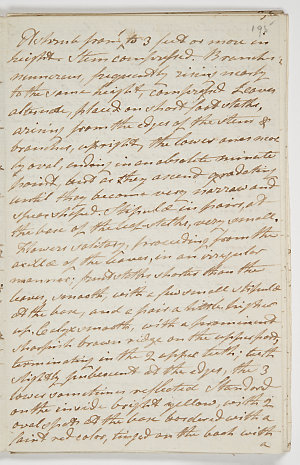 195
A shrub from 1 to 3 feet or more in
height. Stem compressed. Branches
numerous, frequently rising nearly
to the same height, compressed. Leaves
alternate, placed on short footstalks,
arising from the edges of the Stem &
branches, upright, the lower ones near
ly oval, ending in an obsolete minute
point, but as they ascend gradating
until they become very narrow and
spear shaped. Stipulæ in pairs, at
the base of the leafstalks, very small.
Flowers solitary, proceeding from the
axillæ of the leaves, in an irregular
manner; footstalks shorter than the
leaves, smooth, with a few small stipulæ
at the base, and a pair a little higher
up. Calyx smooth, with a prominent
sharpish brown ridge on the upper part,
terminating in the 2 upper teeth; with
slightly pubescent at the edges, the 3
lower sometimes reflected. Standard
on the inside bright yellow, with 2
oval spots at the base bordered with a
faint red color, tinged on the back with
a